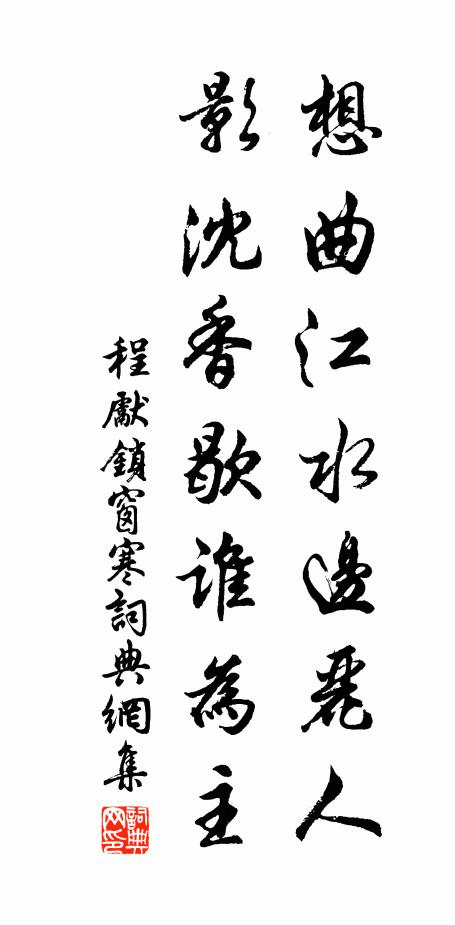 想曲江水邊麗人
影沈香歇誰為主
程獻鎖窗寒詞典網集
詞典網印